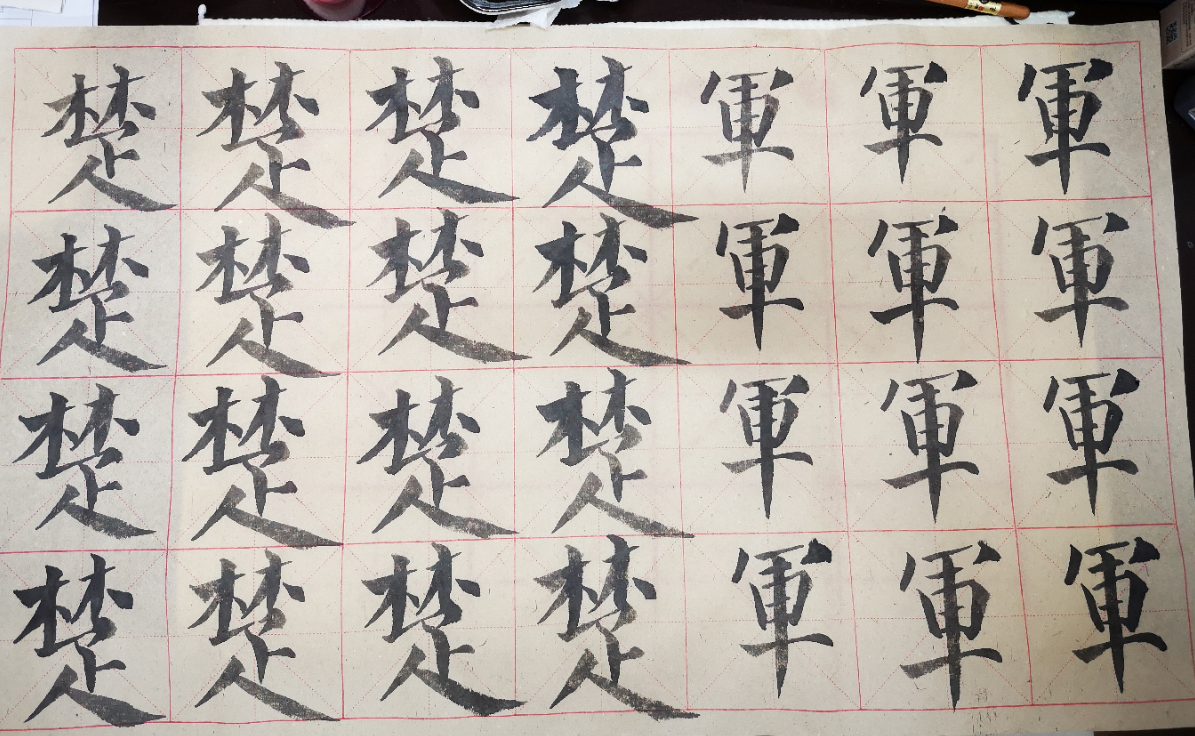 軍軍軍軍
軍軍軍軍
軍軍軍軍
楚楚楚楚
楚楚楚楚
楚楚楚楚
楚楚楚楚